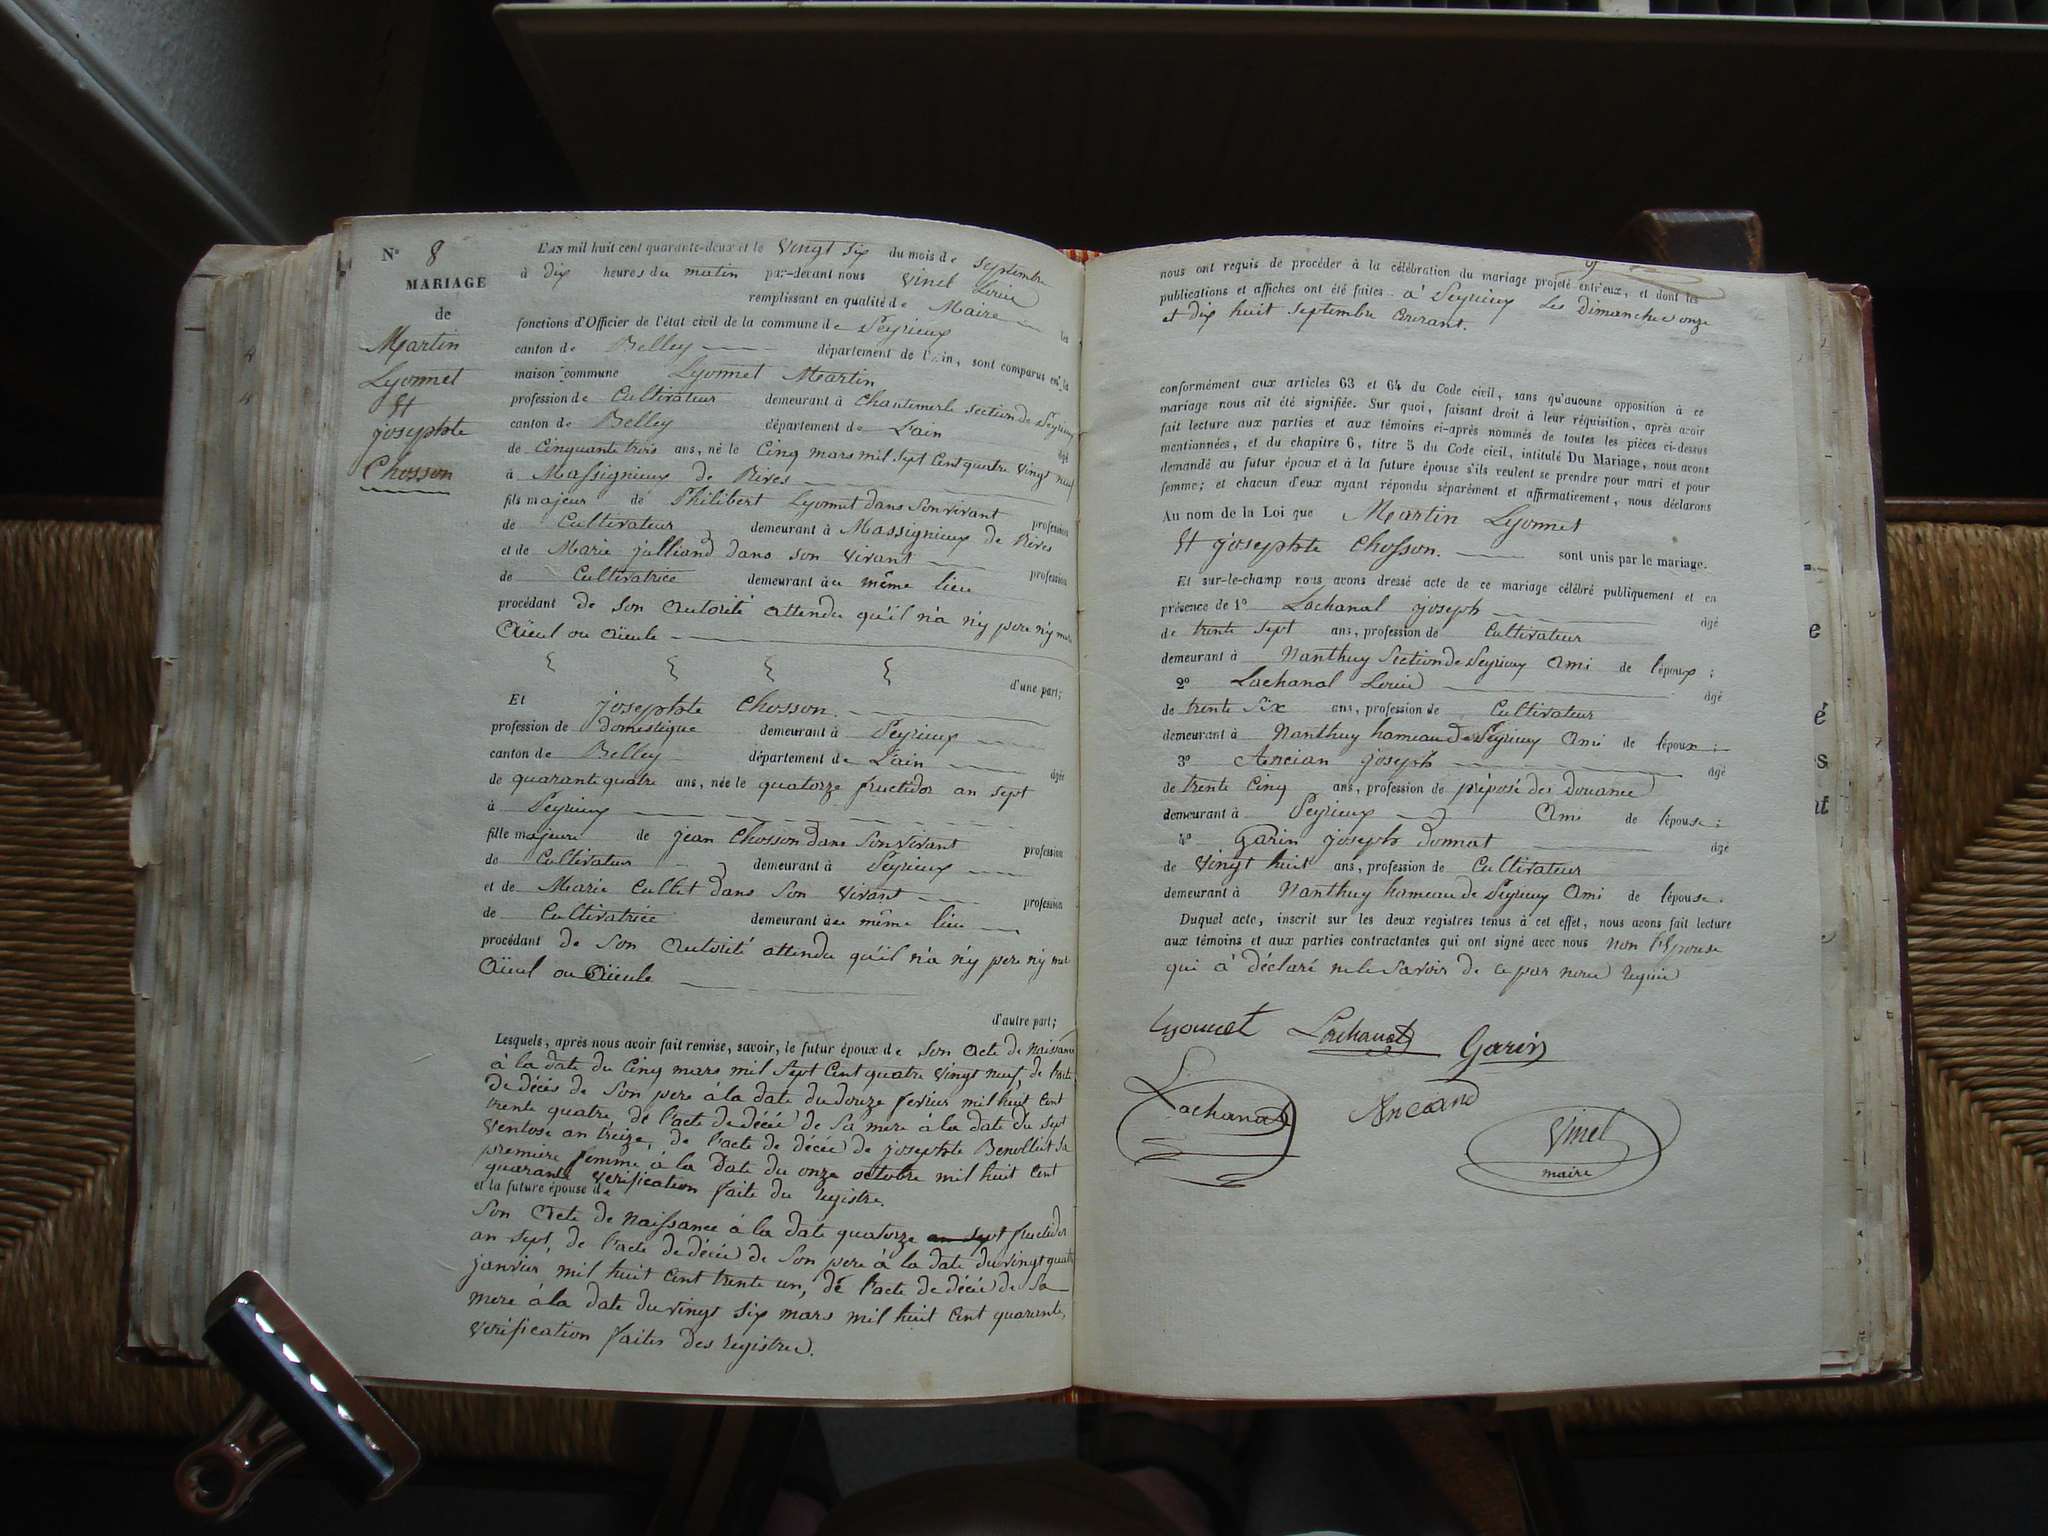 N° 8
MARIAGE
de
Martin
Lyonnet
Et
josephte
Chosson
L'AN mil huit cent quarante-deux et le vingt six du mois de septembre
à dix heures du matin par-devant nous Vinel Louis
remplissant en qualité de Maire les
fonctions d'Officier de l'état civil de la commune de Peyrieux
canton de Belley département de l'Ain, sont comparus en la
maison commune Lyonnet Martin
profession de Cultivateur demeurant à Chantemerle section de Peyrieux
canton de Belley département de L'ain âgé
de Cinquante trois ans, né le Cinq mars mil sept Cent quatre vingt neuf
à Massignieux de Rives
fils majeur de Philibert Lyonnet dans son vivant profession
de Cultivateur demeurant à Massignieux de Rives
et de Marie julliand dans son vivant profession
de Cultivatrice demeurant à au même lieu
procédant de son autorité attendu qu'il n'a n'y pere n'y mere
Aïeul ou aïeule
d'une part;
Et josephte Chosson.
profession de domestique demeurant à Peyrieux
canton de Belley département de L'ain âgée
de quarante quatre ans, née le quatorze fructidor an sept
à Peyrieux
fille majeure de jean Chosson dans son vivant profession
de Cultivateur demeurant à Peyrieux
et de Marie Cultet dans son vivant profession
de Cultivatrice demeurant à au même lieu
procédant de son autorité attendu qu'il n'a n'y pere n'y mere
Aïeul ou Aïeule
d'autre part;
Lesquels, après nous avoir fait remise, savoir, le futur époux de son acte de naissance
à la date du Cinq mars mil sept Cent quatre vingt neuf, de l'acte
de décès de son pere à la date du douze fevrier mil huit cent
trente quatre, de l'acte de décès de sa mere à la date du sept
ventose an treize, de l'acte de décès de josephte Benollict sa
premiere femme à la date du onze octobre mil huit cent
quarante verification faite du registre.
et la future épouse de
son acte de naissance à la date quatorze an sept fructidor
an sept, de l'acte de décès de son pere à la date du vingt quatre
janvier mil huit cent trente un, de l'acte de décès de sa
mere à la date du vingt six mars mil huit cent quarante,
verification faites des registres.
nous ont requis de procéder à la célébration du mariage projeté entr'eux, et dont les
publications et affiches ont été faites à Peyrieux Les Dimanches onze
et dix huit septembre Courant.
conformément aux articles 63 et 64 du Code civil, sans qu'aucune opposition à ce
mariage nous ait été signifiée. Sur quoi, faisant droit à leur réquisition, après avoir
fait lecture aux parties et aux témoins ci-après nommés de toutes les pièces ci-dessus
mentionnées, et du chapitre 6, titre 5 du Code civil, intitulé Du Mariage, nous avons
demandé au futur époux et à la future épouse s'ils veulent se prendre pour mari et pour
femme; et chacun d'eux ayant répondu séparément et affirmativement, nous déclarons
Au nom de la Loi que Martin Lyonnet
Et josephte Chosson. sont unis par le mariage.
Et sur-le-champ nous avons dressé acte de ce mariage célébré publiquement et en
présence de 1° Lachanal joseph âgé
de trente sept ans, profession de Cultivateur
demeurant à Nanthuy Section de Peyrieux Ami de l'époux;
2° Lachanal Louis âgé
de trente six ans, profession de Cultivateur
demeurant à Nanthuy hameau de Peyrieux Ami de l'époux;
3° Ancian joseph âgé
de trente Cinq ans, profession de préposé des Douanes
demeurant à Peyrieux Ami de l'épouse;
4° Garin joseph donnat âgé
de Vingt huit ans, profession de Cultivateur
demeurant à Nanthuy hameau de Peyrieux Ami de l'épouse.
Duquel acte, inscrit sur les deux registres tenus à cet effet, nous avons fait lecture
aux témoins et aux parties contractantes qui ont signé avec nous non l'Epouse
qui a déclaré ne le savoir de ce par nous requis
Lyonnet Lachanal Garin
Lachanal Anciand
Vinel
maire